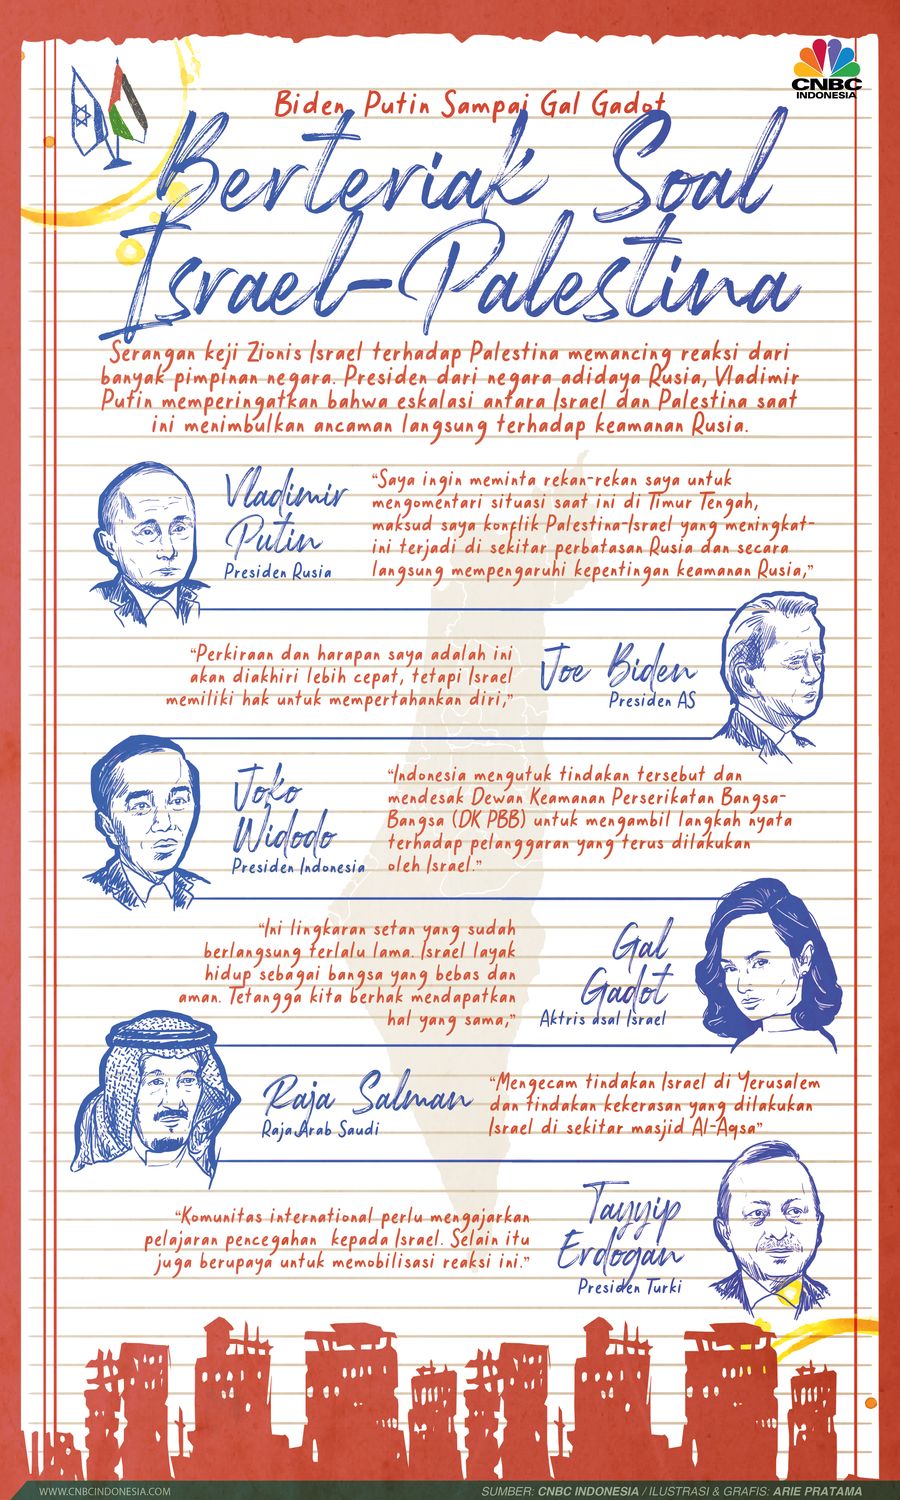 CNBC
INDONESIA
Biden, Putin Sampai Gal Gadot
Berteriak Soal
Israel-Palestina
Serangan keji Zionis Israel terhadap Palestina memancing reaksi dari
banyak pimpinan negara. Presiden dari negara adidaya Rusia, Vladimir
Putin memperingatkan bahwa eskalasi antara Israel dan Palestina saat
ini menimbulkan ancaman langsung terhadap keamanan Rusia.
Vladimir
Putin
Presiden Rusia
"Saya ingin meminta rekan-rekan saya untuk
mengomentari situasi saat ini di Timur Tengah,
maksud saya konflik Palestina-Israel yang meningkat-
ini terjadi di sekitar perbatasan Rusia dan secara
langsung mempengaruhi kepentingan keamanan Rusia,"
"Perkiraan dan harapan saya adalah ini
akan diakhiri lebih cepat, tetapi Israel
memiliki hak untuk mempertahankan diri,"
Joe Biden
Presiden AS
Joko
Widodo
Presiden Indonesia
"Indonesia mengutuk tindakan tersebut dan
mendesak Dewan Keamanan Perserikatan Bangsa-
Bangsa (DK PBB) untuk mengambil langkah nyata
terhadap pelanggaran yang terus dilakukan
oleh Israel."
"Ini lingkaran setan yang sudah
berlangsung terlalu lama. Israel layak
hidup sebagai bangsa yang bebas dan
aman. Tetangga kita berhak mendapatkan
hal yang sama,"
Gal
Gadot
Aktris asal Israel
Raja Salman
Raja Arab Saudi
"Mengecam tindakan Israel di Yerusalem
dan tindakan kekerasan yang dilakukan
Israel di sekitar masjid Al-Aqsa"
"Komunitas international perlu mengajarkan
pelajaran pencegahan kepada Israel. Selain itu
juga berupaya untuk memobilisasi reaksi ini."
Tayyip
Erdogan
Presiden Turki
WWW.CNBCINDONESIA.COM
SUMBER: CNBC INDONESIA / ILUSTRASI & GRAFIS: ARIE PRATAMA